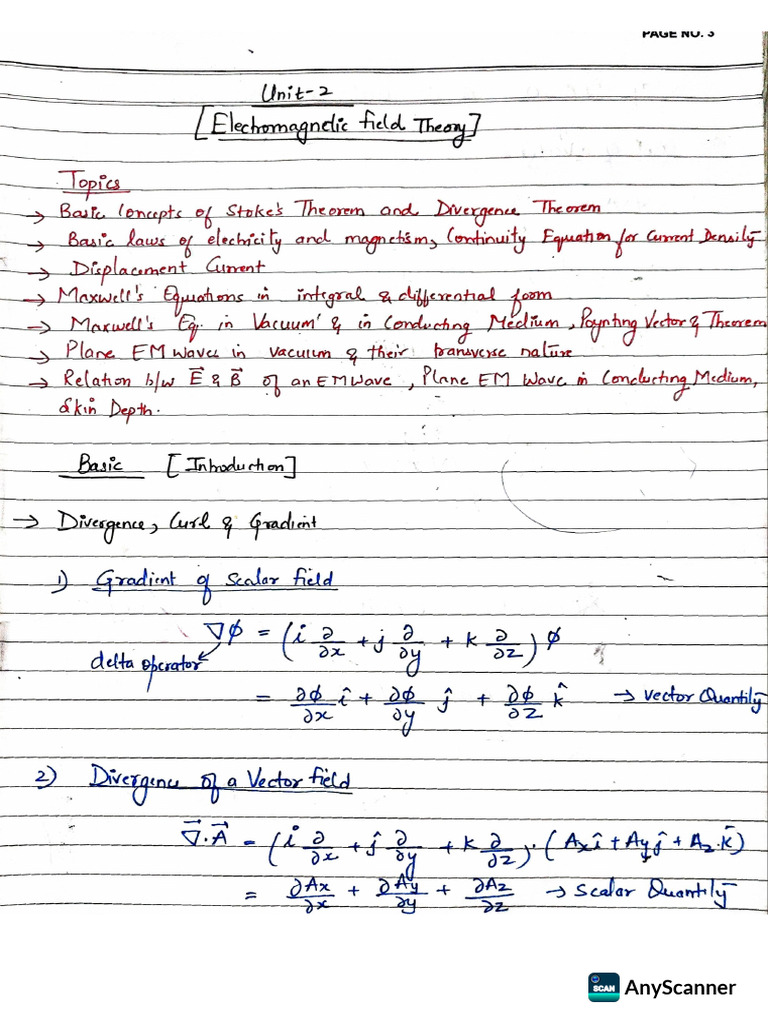 PAGE NO. 3
Unit-2
[Electromagnetic field Theory]
Topics
→ Basic Concepts of Stoke's Theorem and Divergence Theorem
→ Basic laws of electricity and magnetism, Continuity Equation for Current Density
→ Displacement Current
→ Maxwell's Equations in integral & differential form
→ Maxwell's Eq. in Vacuum & in Conducting Medium, Poynting Vector & Theorem
→ Plane EM Waves in vacuum & their transverse nature
→ Relation b/w E⃗ & B⃗ of an EM Wave, Plane EM Wave in Conducting Medium,
Skin Depth.
Basic [Introduction]
→ Divergence, Curl & Gradient
1) Gradient of Scalar field
∇φ = (i ∂/∂x + j ∂/∂y + k ∂/∂z) φ
delta operator
= ∂φ/∂x î + ∂φ/∂y ĵ + ∂φ/∂z k̂ → Vector Quantity
2) Divergence of a Vector field
∇⃗.A⃗ = (i ∂/∂x + ĵ ∂/∂y + k ∂/∂z).(Axî + Ayĵ + Az.k̂)
= ∂Ax/∂x + ∂Ay/∂y + ∂Az/∂z → Scalar Quantity
SCAN AnyScanner